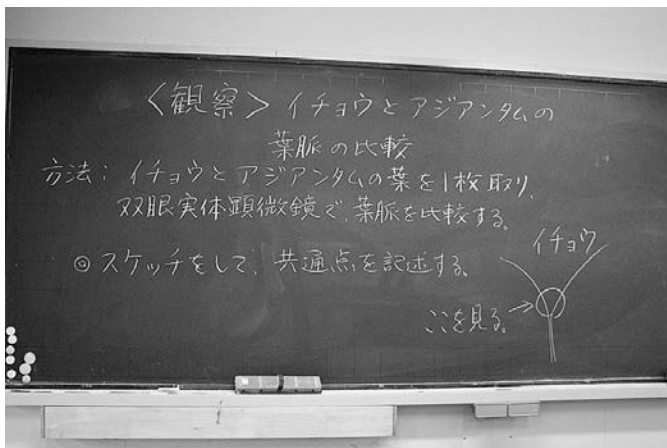 〈観察〉イチョウとアジアンタムの
葉脈の比較
方法：イチョウとアジアンタムの葉を1枚取り,
双眼実体顕微鏡で,葉脈を比較する。
◎スケッチをして,共通点を記述する。
イチョウ
ここを見る。